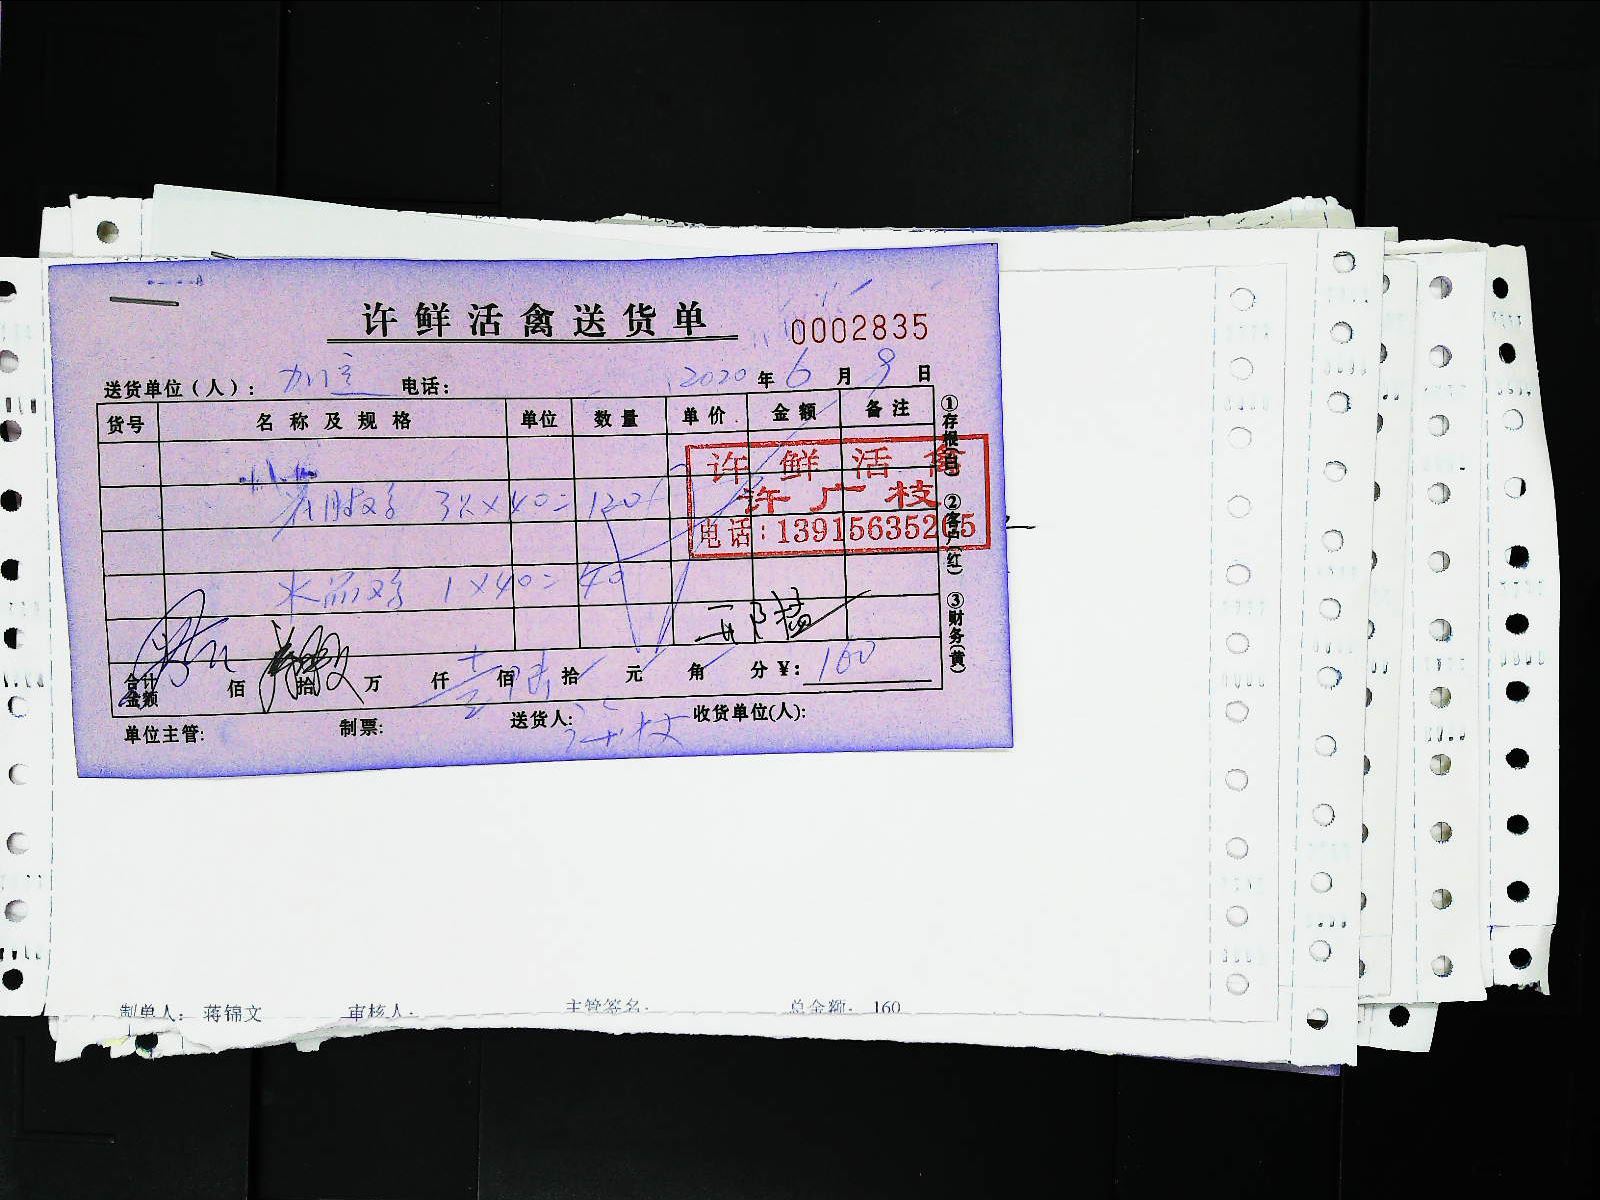 许鲜活禽送货单
0002835
送货单位（人）： 电话： 2020 年 6 月 9 日
货号 名称及规格 单位 数量 单价 金额 备注
许鲜活禽
许广枝
电话：13915635265
3只×40=120
1×40=40
合计金额 佰 拾 万 仟 佰 拾 元 角 分 ¥： 160
单位主管: 制票: 送货人: 收货单位(人):
①存根(白) ②客户(红) ③财务(黄)
制单人： 蒋锦文 审核人： 主管签名： 总金额： 160